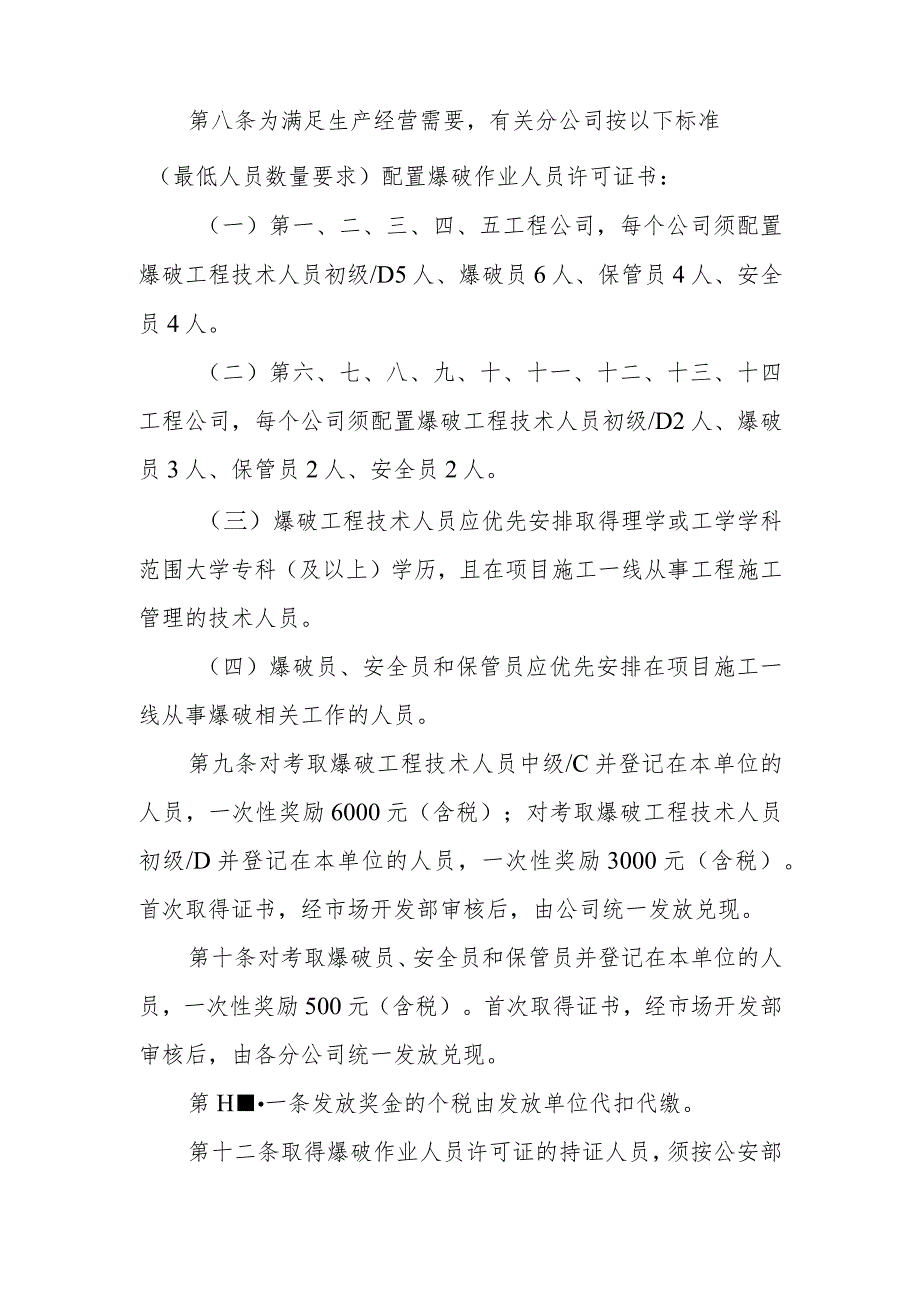 第八条为满足生产经营需要，有关分公司按以下标准
（最低人员数量要求）配置爆破作业人员许可证书：
（一）第一、二、三、四、五工程公司，每个公司须配置
爆破工程技术人员初级/D5人、爆破员6人、保管员4人、安全
员4人。
（二）第六、七、八、九、十、十一、十二、十三、十四
工程公司，每个公司须配置爆破工程技术人员初级/D2人、爆破
员3人、保管员2人、安全员2人。
（三）爆破工程技术人员应优先安排取得理学或工学学科
范围大学专科（及以上）学历，且在项目施工一线从事工程施工
管理的技术人员。
（四）爆破员、安全员和保管员应优先安排在项目施工一
线从事爆破相关工作的人员。
第九条对考取爆破工程技术人员中级/C并登记在本单位的
人员，一次性奖励6000元（含税）；对考取爆破工程技术人员
初级/D并登记在本单位的人员，一次性奖励3000元（含税）。
首次取得证书，经市场开发部审核后，由公司统一发放兑现。
第十条对考取爆破员、安全员和保管员并登记在本单位的人
员，一次性奖励500元（含税）。首次取得证书，经市场开发部
审核后，由各分公司统一发放兑现。
第H■•一条发放奖金的个税由发放单位代扣代缴。
第十二条取得爆破作业人员许可证的持证人员，须按公安部